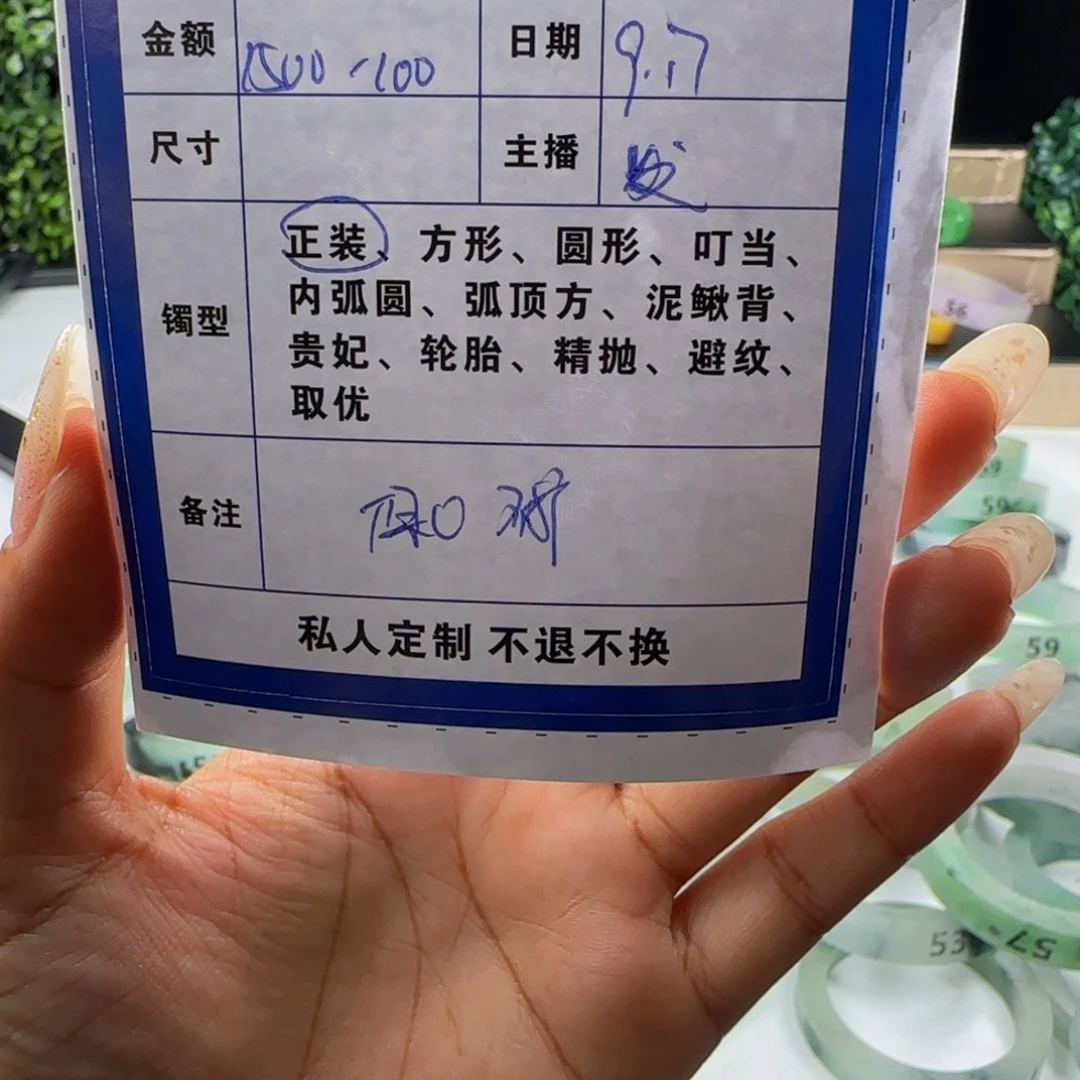 金额 1500-100 日期 9.17
尺寸 主播
镯型 正装、方形、圆形、叮当、
内弧圆、弧顶方、泥鳅背、
贵妃、轮胎、精抛、避纹、
取优
备注
私人定制 不退不换
56
59
59
59
53
57